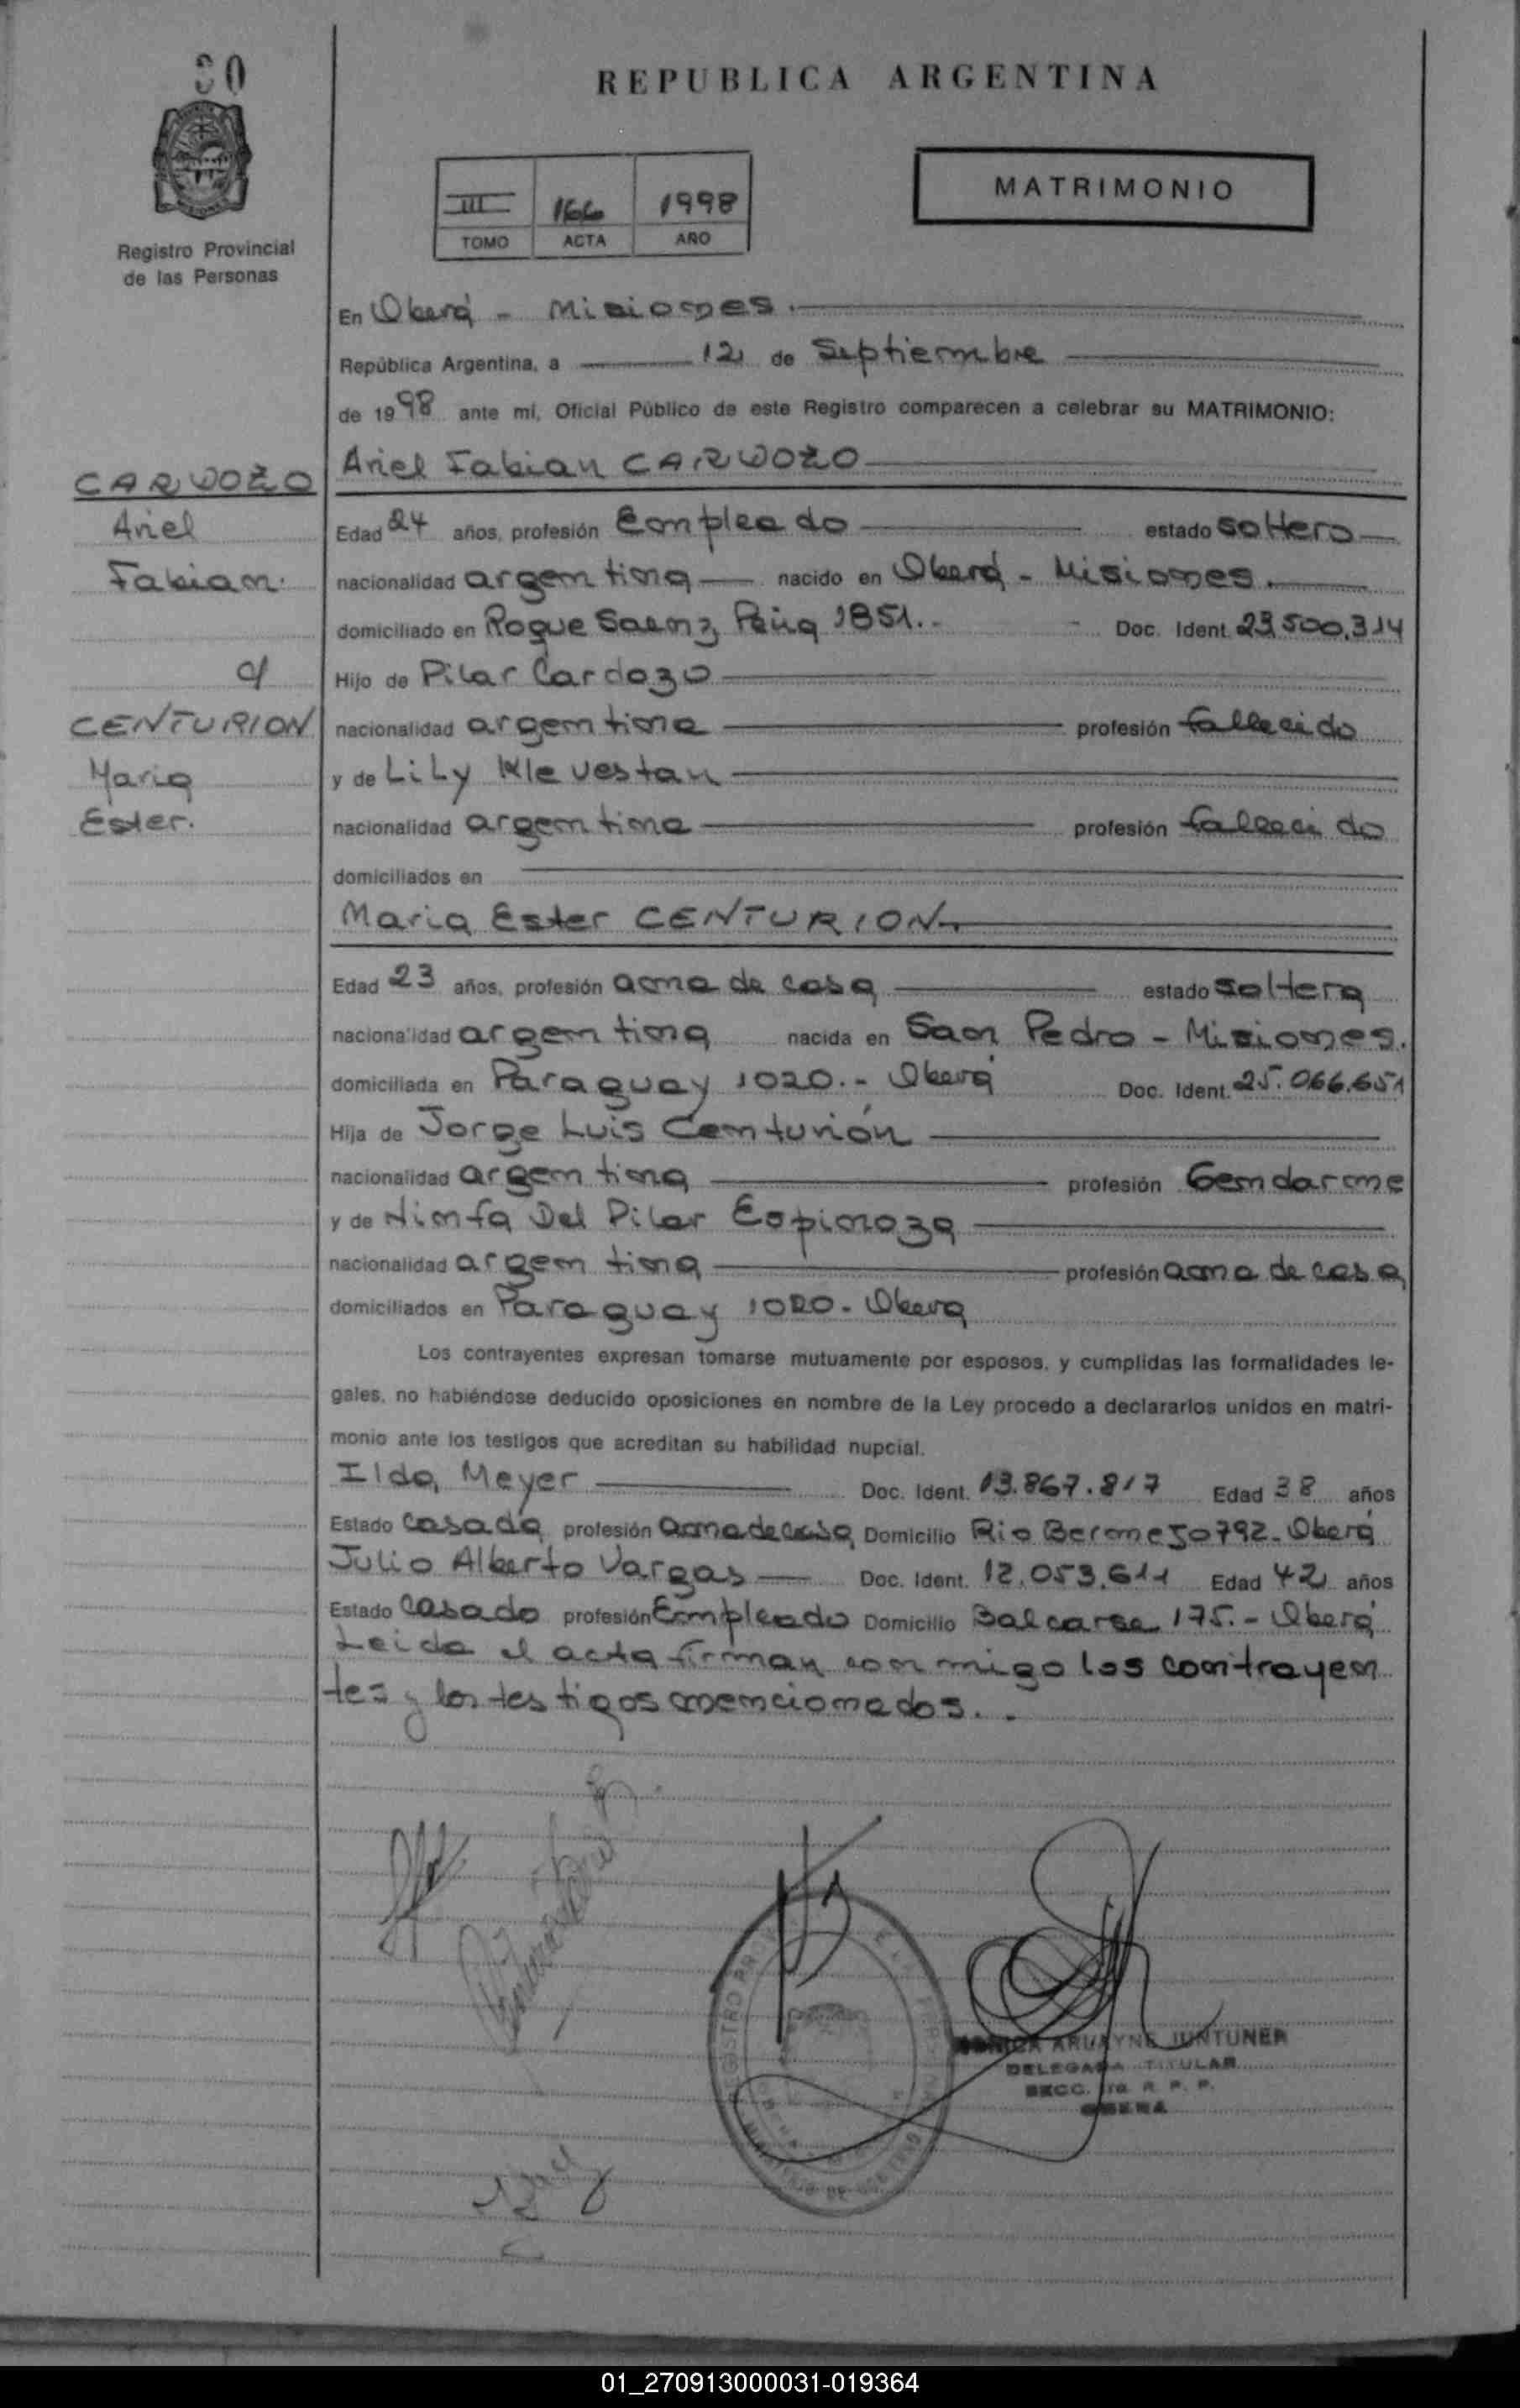 30
REPUBLICA ARGENTINA
MATRIMONIO
III 166 1998
TOMO ACTA AÑO
Registro Provincial
de las Personas
En Oberá - Misiones.
República Argentina, a 12 de Septiembre
de 1998 ante mi, Oficial Público de este Registro comparecen a celebrar su MATRIMONIO:
CARDOZO
Ariel
Fabian.
c/
CENTURION
Maria
Ester.
Ariel Fabian CARDOZO
Edad 24 años, profesión Empleado estado soltero
nacionalidad argentina nacido en Oberá - Misiones.
domiciliado en Roque Saenz Peña 1851.- Doc. Ident. 23.500.314
Hijo de Pilar Cardozo
nacionalidad argentina profesión fallecido
y de Lily Klevestan
nacionalidad argentina profesión fallecido
domiciliados en
Maria Ester CENTURION.
Edad 23 años, profesión ama de casa estado soltera
nacionalidad argentina nacida en San Pedro - Misiones.
domiciliada en Paraguay 1020.- Oberá Doc. Ident. 25.066.651
Hija de Jorge Luis Centurión
nacionalidad argentina profesión Gendarme
y de Ninfa Del Pilar Espinoza
nacionalidad argentina profesión ama de casa
domiciliados en Paraguay 1020- Obera
Los contrayentes expresan tomarse mutuamente por esposos, y cumplidas las formalidades le-
gales, no habiéndose deducido oposiciones en nombre de la Ley procedo a declararlos unidos en matri-
monio ante los testigos que acreditan su habilidad nupcial.
Ilda Meyer Doc. Ident. 13.867.817 Edad 38 años
Estado Casada profesión ama de casa Domicilio Rio Bermejo 792- Oberá
Julio Alberto Vargas Doc. Ident. 12.053.611 Edad 42 años
Estado Casado profesión Empleado Domicilio Balcarse 175.- Oberá
Leida el acta firman conmigo los contrayen
tes y los testigos mencionados..
ARUAYNE JUNTUNEN
DELEGADA TITULAR
SECC. R. P. P.
OBERA
01_270913000031-019364